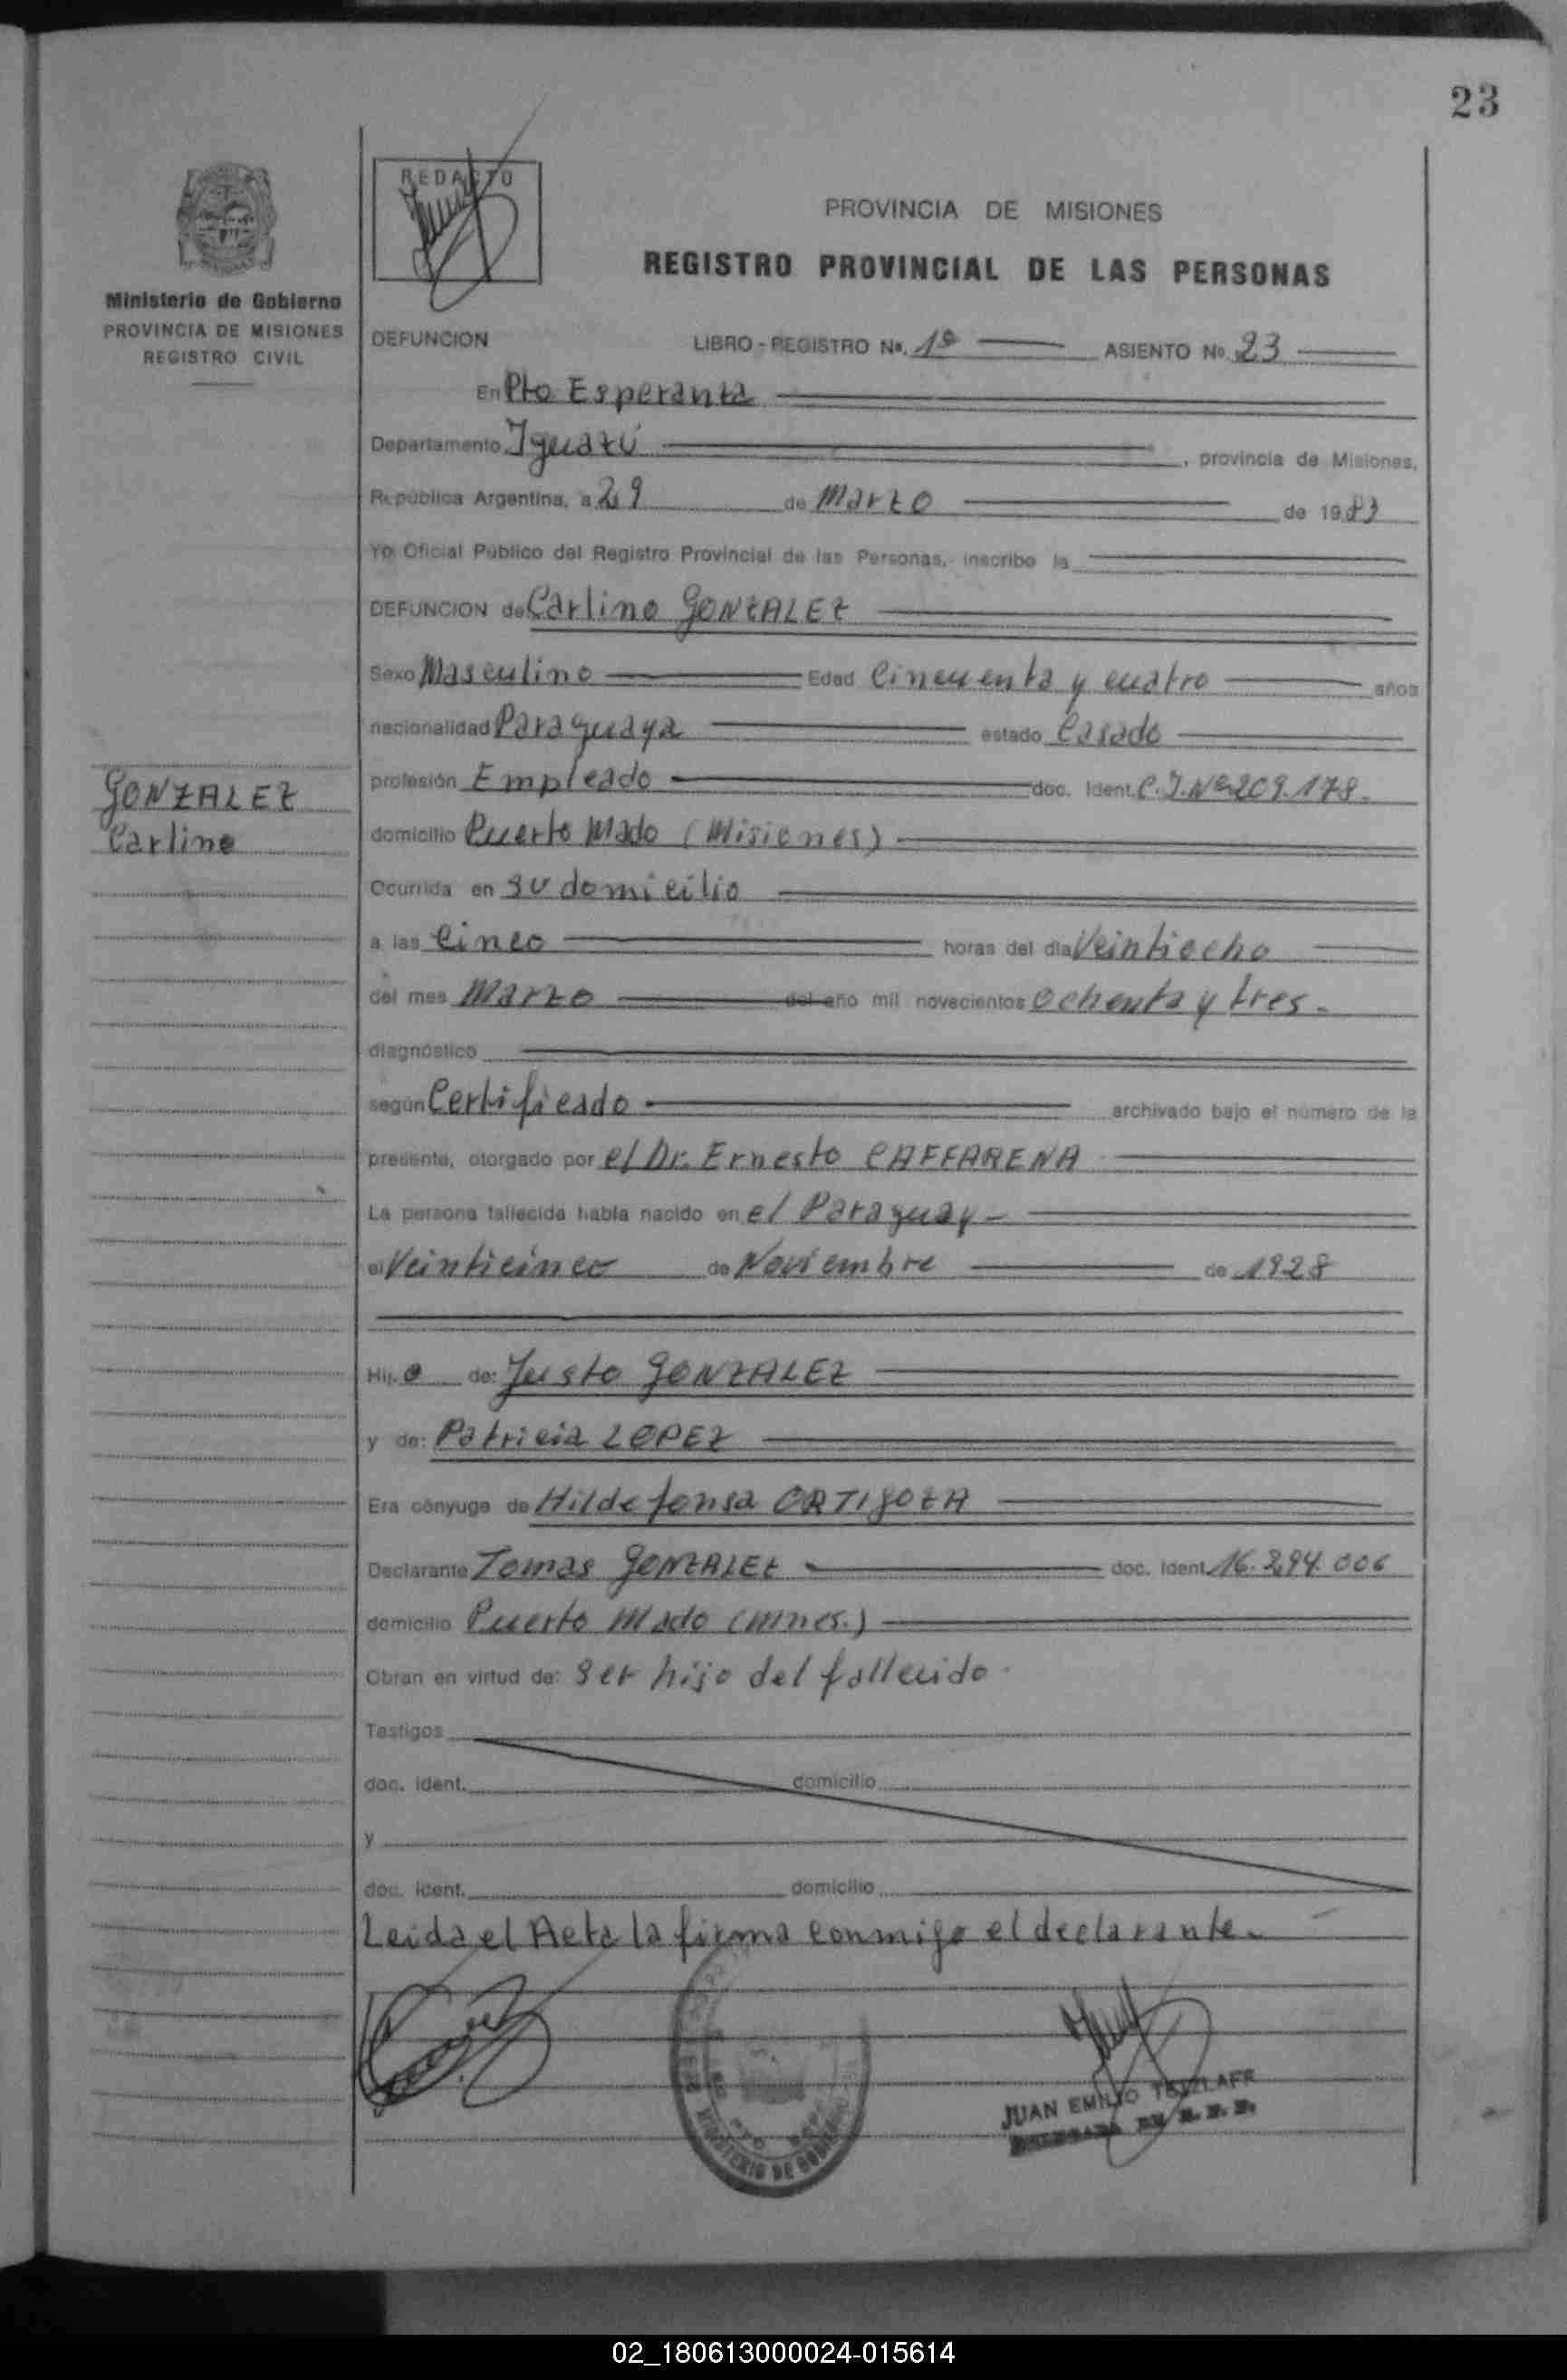 23
REDACTO
PROVINCIA DE MISIONES
REGISTRO PROVINCIAL DE LAS PERSONAS
Ministerio de Gobierno
PROVINCIA DE MISIONES
REGISTRO CIVIL
DEFUNCION LIBRO - REGISTRO No. 1º ASIENTO No 23
En Pto Esperanza
Departamento Iguazú , provincia de Misiones,
República Argentina, a 29 de Marzo de 1983
Yo Oficial Público del Registro Provincial de las Personas, inscribo la
DEFUNCION de Carlino GONZALEZ
Sexo Masculino Edad Cincuenta y cuatro años
nacionalidad Paraguaya estado Casado
profesión Empleado doc. Ident. C.I. Nº 209.178.
GONZALEZ
Carlino
domicilio Puerto Mado (Misiones)
Ocurrida en su domicilio
a las Cinco horas del día Veintiocho
del mes Marzo del año mil novecientos Ochenta y tres.
diagnóstico
según Certificado archivado bajo el número de la
presente, otorgado por el Dr. Ernesto CAFFARENA
La persona fallecida había nacido en el Paraguay
el Veinticinco de Noviembre de 1928
Hij o de: Justo GONZALEZ
y de: Patricia LOPEZ
Era cónyuge de Hildefonsa ORTIGOZA
Declarante Tomas GONZALEZ doc. Ident. 16.294.006
domicilio Puerto Mado (mnes.)
Obran en virtud de: Ser hijo del fallecido.
Testigos
doc. ident. domicilio
y
doc. ident. domicilio
Leida el Acta la firma conmigo el declarante.
MINISTERIO DE GOBIERNO
JUAN EMILIO TETZLAFF
02_180613000024-015614